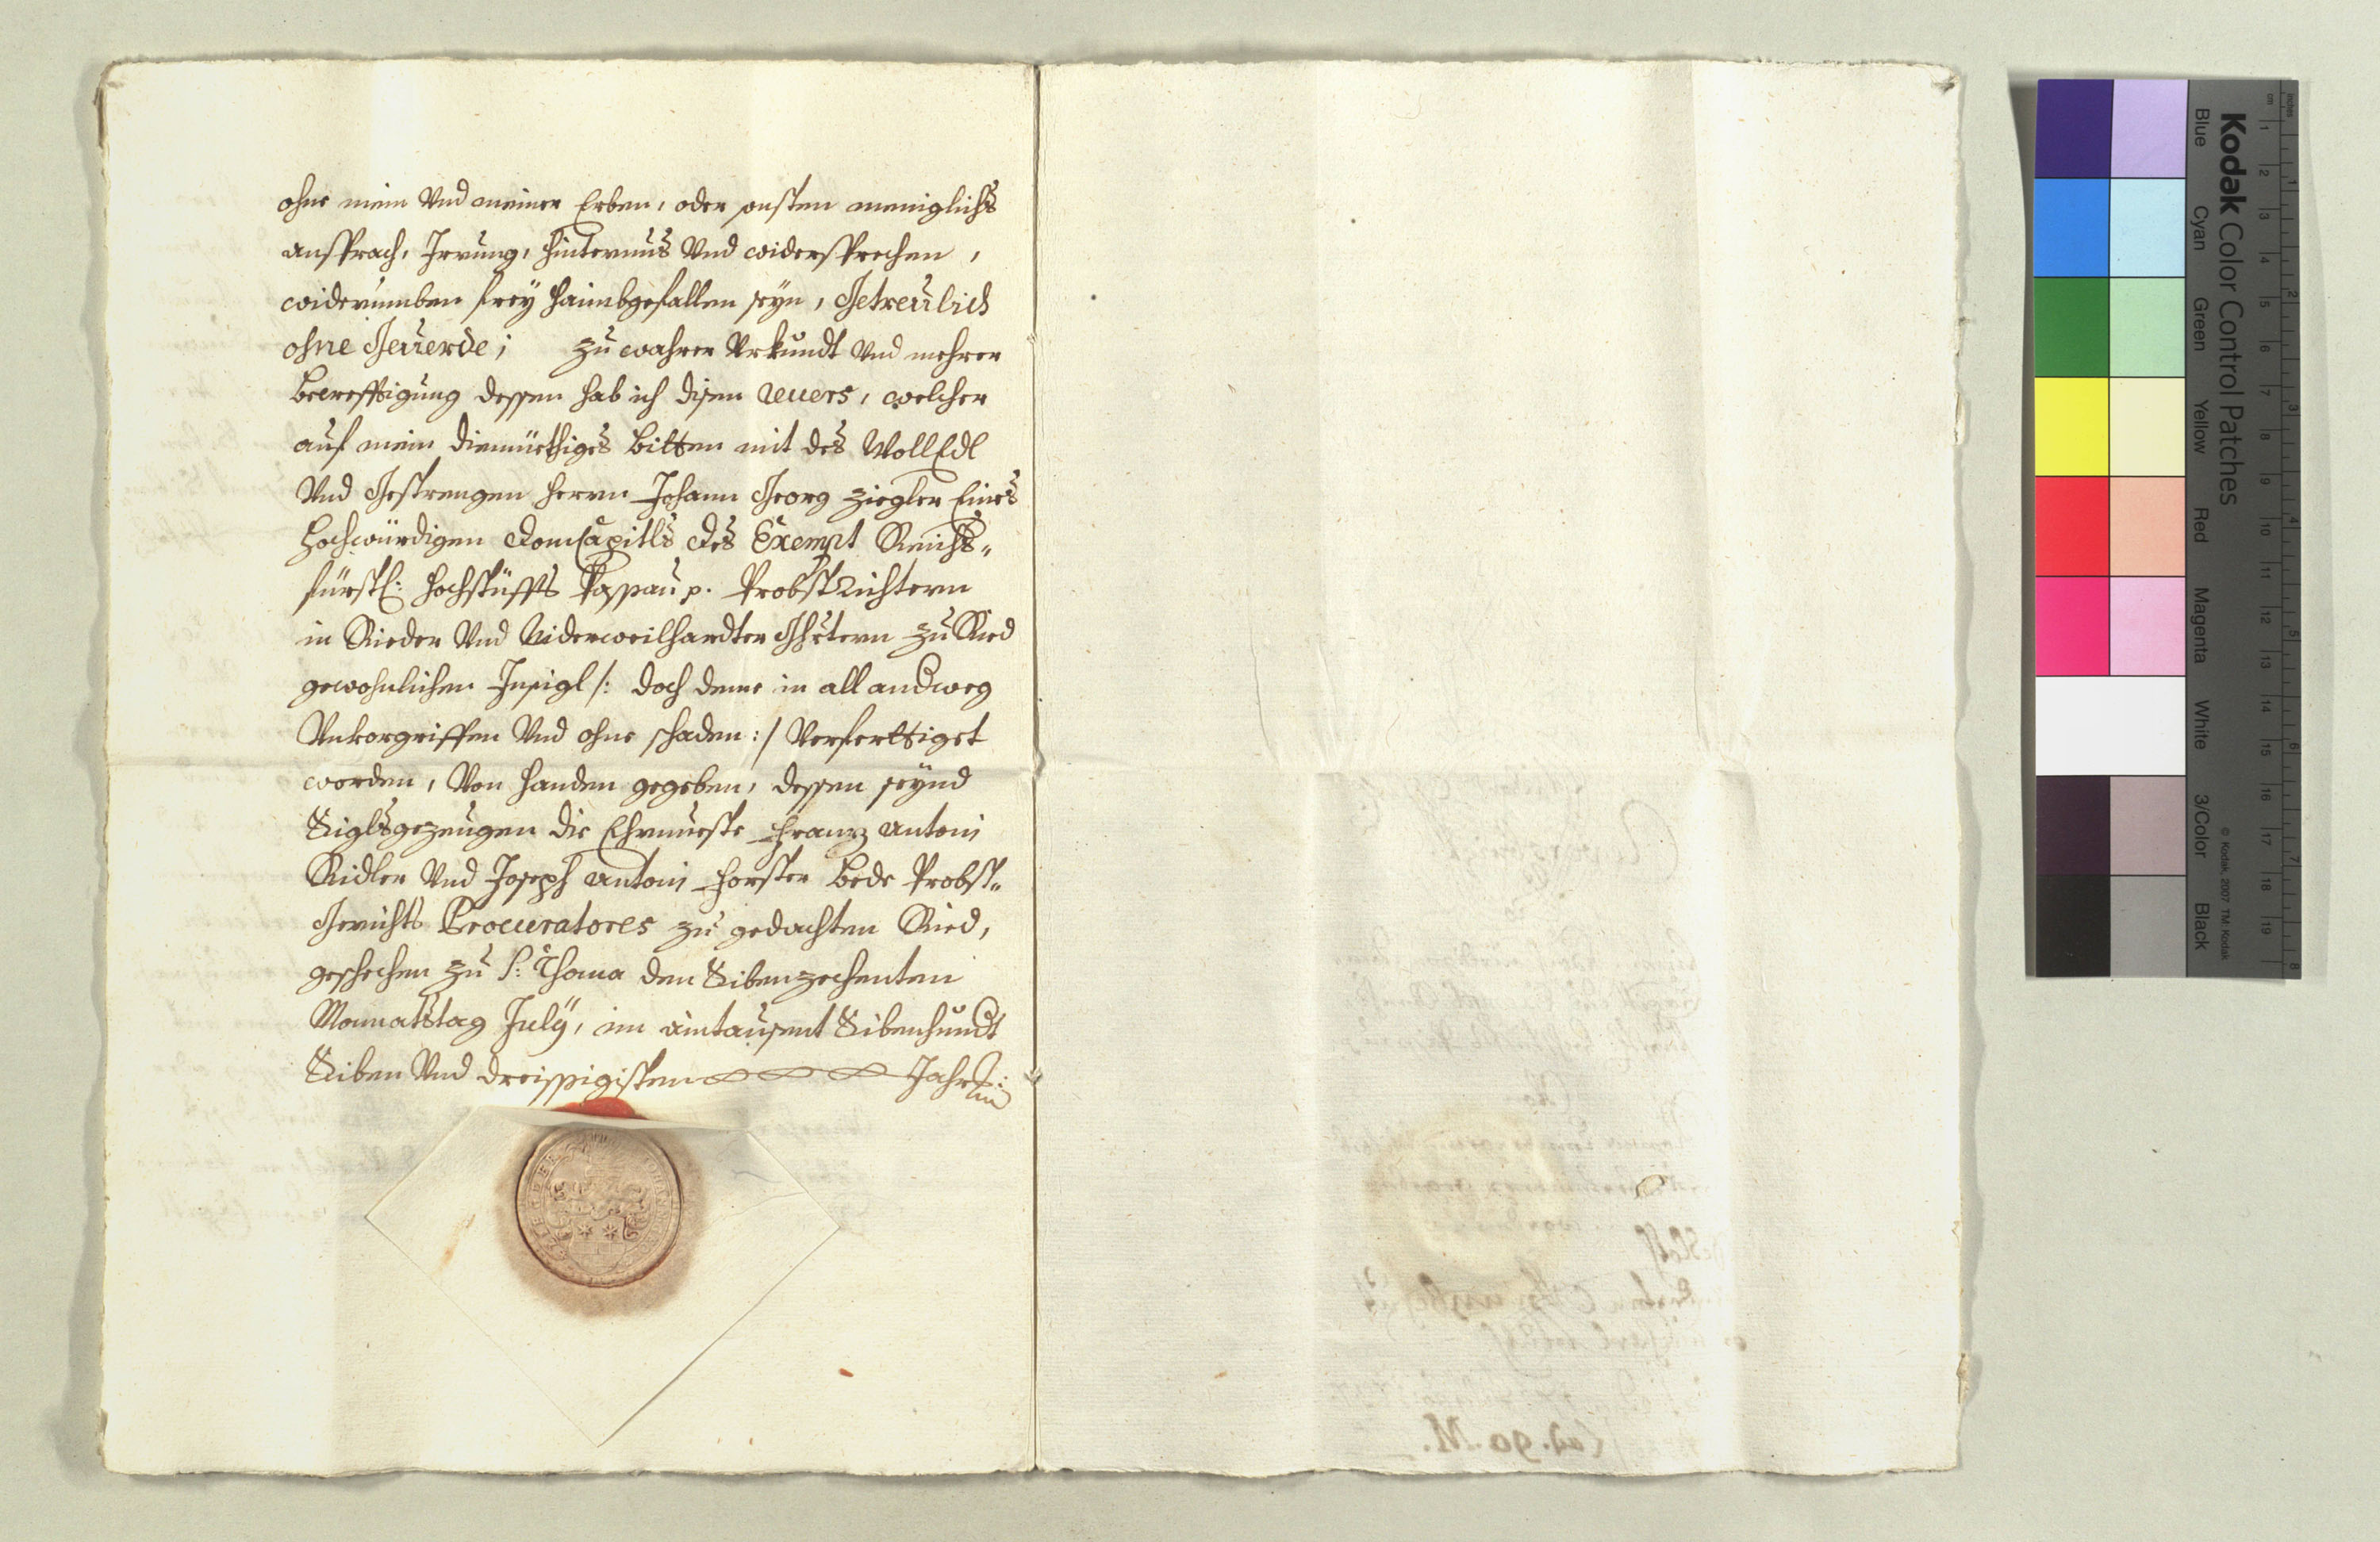 ohne mein Vnd meiner Erben, oder onsten meniglichs
ansprach, Irrung, hinternus Vnd widersprechen,
widerumben frey haimbgefallen seyn, Getreulich
ohne Geuerde; zu wahrer Vrkundt Vnd mehrer
becrefftigung dessen hab ich disen reuers, welcher
auf mein diemüethiges bitten mit des WollEdl
Vnd Gestrengen Herrn Johann Georg Ziegler Eines
Hochwürdigen DomCapitls des Exempt Reichs„
fürstl: Hochstüffts Passau p. ProbstRichtern
in Rieder Vnd Niderweilhardter zu Ried
gewohnlichen Insigl /: doch deme in all andweg
Vnuorgriffen Vnd ohne schaden :/ Verferttiget
worden, Von handen gegeben, dessen seynd
Siglsgezeugen die Ehrnueste Franz Antoni
Ridler Vnd Joseph Antoni Forster bede Probst„
Gerichts Procuratores zu gedachten Ried,
geschechen zu S: Thoma den Sibenzechenten
Monnatstag July, im aintausent Sibenhundt
Siben Vnd dreissigisten Jahr:
Cad. 90. M.
Kodak Color Control Patches
Blue Cyan Green Yellow Red Magenta White 3/Color Black
© Kodak, 2007 TM Kodak
cm 1 2 3 4 5 6 7 8 9 10 11 12 13 14 15 16 17 18 19
inches 1 2 3 4 5 6 7 8